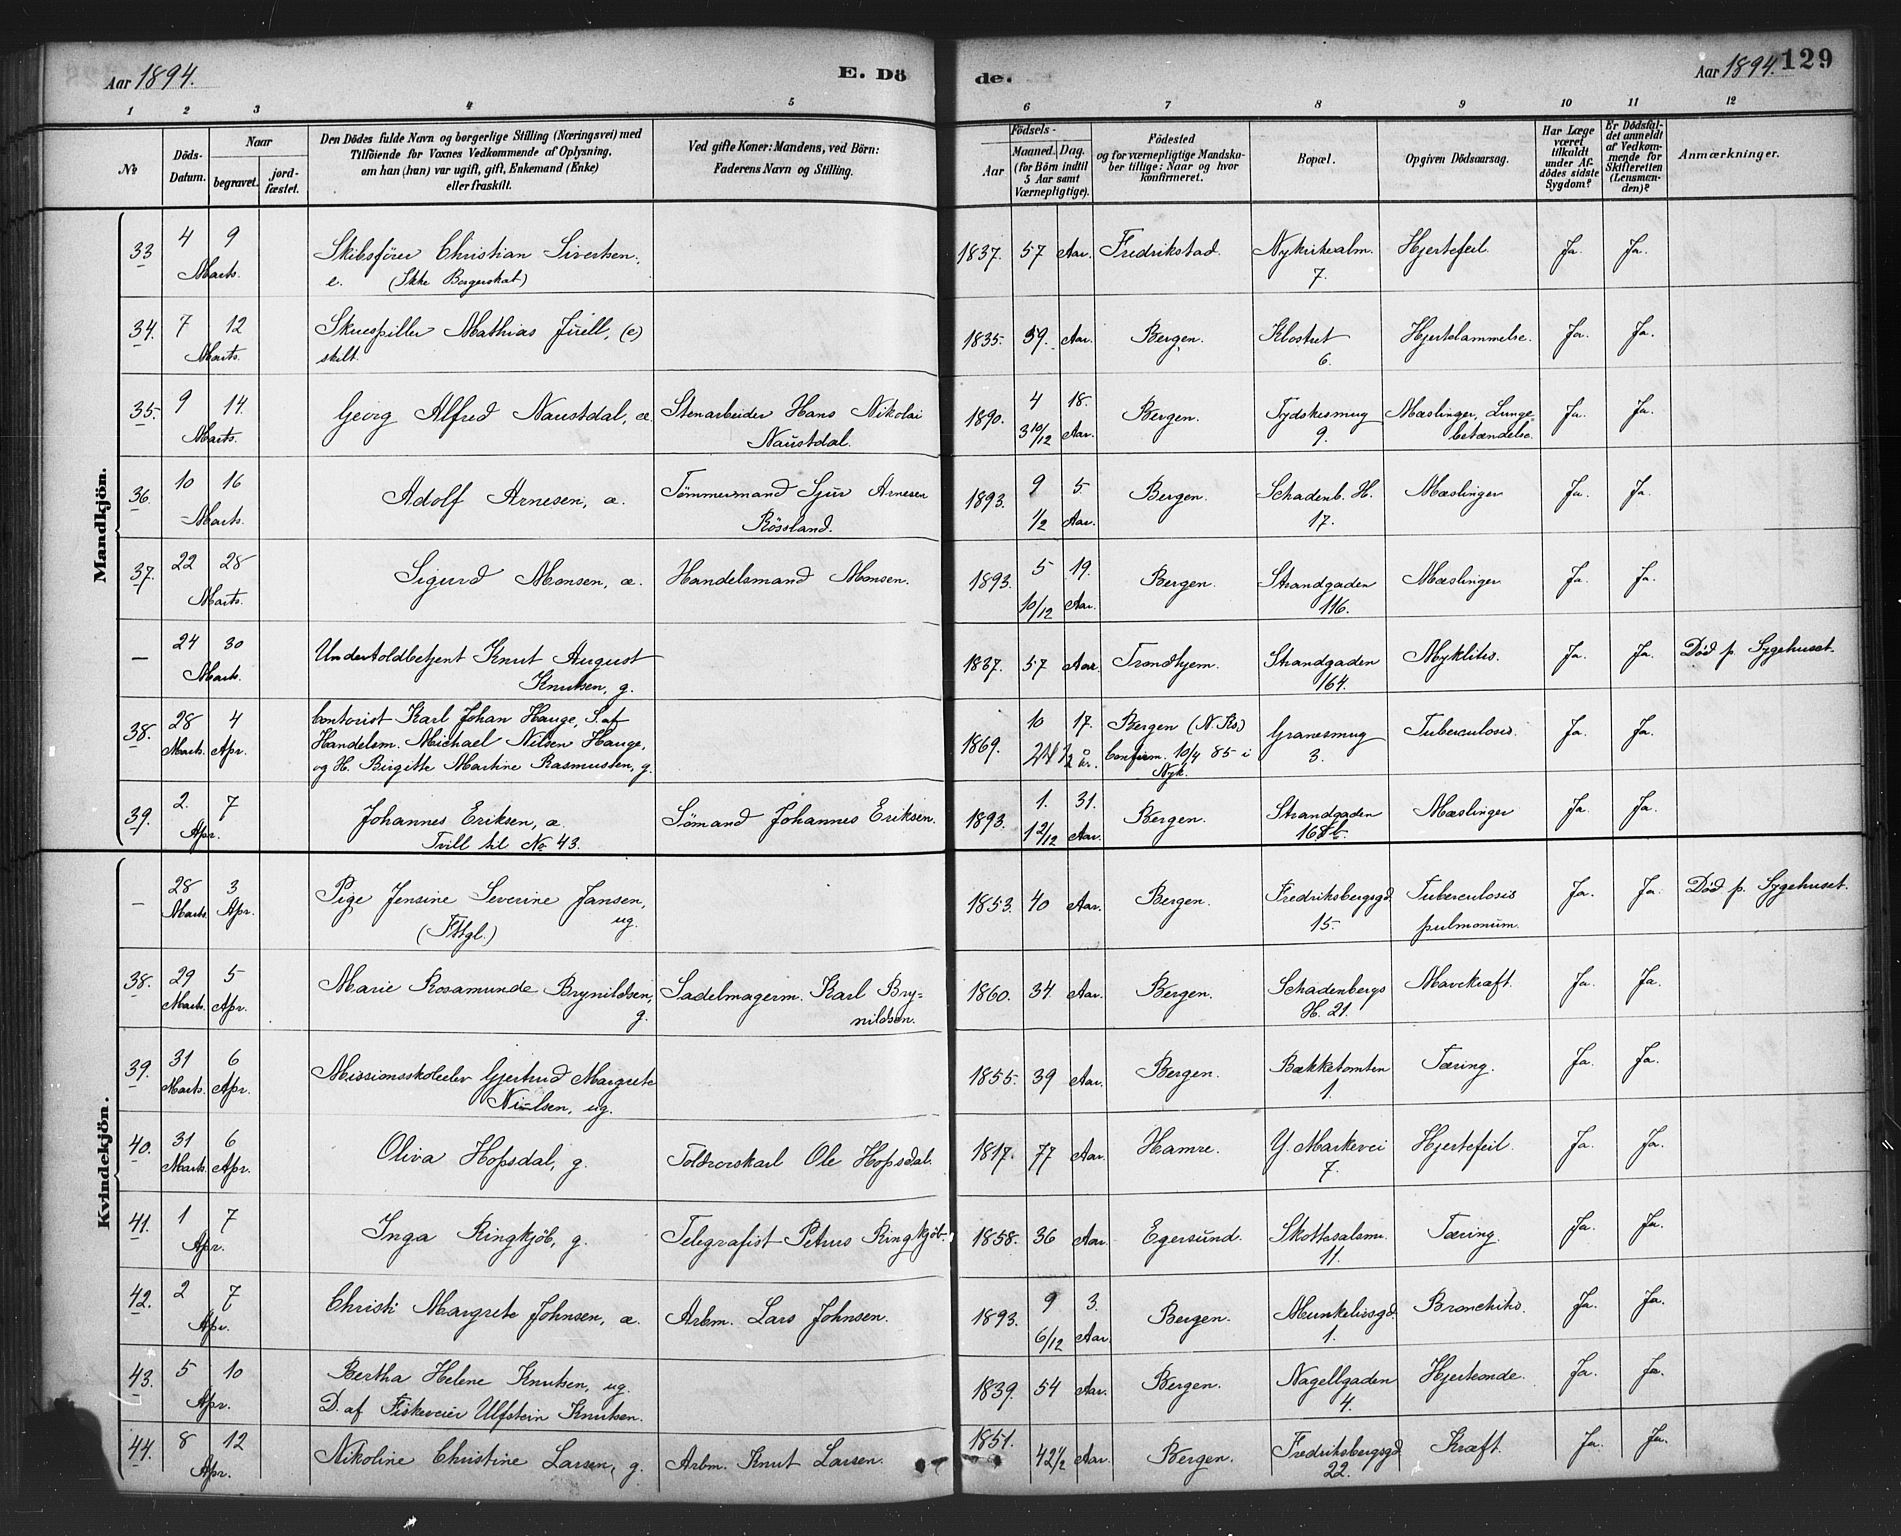 Aar 1894. E. Dö de. Aar 1894. 129
1 2 3 4 5 6 7 8 9 10 11 12
№ Döds-Datum. Naar begravet. jordfæstet. Den Dödes fulde Navn og borgerlige Stilling (Næringsvei) med Tilföiende for Voxnes Vedkommende af Oplysning, om han (hun) var ugift, gift, Enkemand (Enke) eller fraskilt. Ved gifte Koner: Mandens, ved Börn: Faderens Navn og Stilling. Födsels- Aar Maaned. Dag. (for Börn indtil 5 Aar samt Værnepligtige). Födested og for værnepligtige Mandskaber tillige: Naar og hvor konfirmeret. Bopæl. Opgiven Dödsaarsag. Har Læge været tilkaldt under Afdödes sidste Sygdom? Er Dödsfaldet anmeldt af Vedkommende for Skifteretten (Lensmanden)? Anmærkninger.
Mandkjön.
33 4 9 Skibsfører Christian Sivertsen, 1837. 57 Aar. Fredrikstad. Nykirkealm. Hjertefeil. Ja. Ja.
Marts. e. (Ikke Borgerskab) 7.
34. 7 12 Skuespiller Mathias Juell, (e) 1835. 59. Aar. Bergen. Klostret Hjertelammelse. Ja. Ja.
Marts. skilt. 6.
35. 9 14. Georg Alfred Naustdal, æ. Stenarbeider Hans Nikolai 1890. 4 18. Bergen. Tydskesmug Mæslinger, Lunge- Ja. Ja.
Marts. Naustdal. 3 10/12 Aar. 9. betændelse.
36. 10 16 Adolf Arnesen, æ. Tømmermand Sjur Arnesen 1893. 9 5. Bergen. Schadenb. H. Mæslinger Ja. Ja.
Marts. Røssland. 1/2 Aar. 17.
37. 22 28 Sigurd Monsen, æ. Handelsmand Monsen. 1893. 5 19. Bergen. Strandgaden Mæslinger Ja. Ja.
Marts. 10/12 Aar. 116.
— 24 30 Undertoldbetjent Knut August 1837. 57 Aar. Trondhjem. Strandgaden Myklitis. Ja. Ja. Død p. Sygehuset.
Marts. Knutsen, g. 164.
38. 28 4 Contorist Karl Johan Hauge, S. af 1869. 10 17. Bergen (N. Ks.) Granesmug Tuberculosis. Ja. Ja.
Marts. Apr. Handelsm. Michael Nilsen Hauge, Confirm. 10/4 85 i 3.
og H. Birgitte Martine Rasmussen, g. 24 1/2 år. Nyk.
39. 2. 7 Johannes Eriksen, æ. Sømand Johannes Eriksen. 1893. 1. 31. Bergen. Strandgaden Mæslinger Ja. Ja.
Apr. Tvill. til No 43. 1 2/12 Aar.
Kvindekjön.
— 28 3 Pige Jensine Severine Jansen, 1853. 40 Aar. Bergen. Fredriksbergsgd. Tuberculosis Ja. Ja. Død p. Sygehuset.
Marts Apr. (Fttgl.) ug. 15. pulmonum.
38. 29 5 Marie Rosamunde Brynildsen, Sadelmagerm. Karl Bry- 1860. 34. Aar. Bergen. Schadenbergs Mavekræft. Ja. Ja.
Marts. Apr. g. nildsen. H. 21.
39. 31 6 Missionsskoleelev Gjertrud Margrete 1855. 39 Aar. Bergen. Bakketomten Tæring. Ja. Ja.
Marts. Apr. Nielsen, ug. 1.
40. 31 6 Oliva Hopsdal, g. Toldrorskarl Ole Hopsdal. 1817. 77 Aar. Hamre. Y. Markevei Hjertefeil. Ja. Ja.
Marts. Apr. 7.
41. 1 7 Inga Ringkjøb, g. Telegrafist Petrus Ringkjøb. 1858. 36 Aar. Egersund. Skottesalm. Tæring. Ja. Ja.
Apr. 11.
42. 2 7 Christi Margrete Johnsen, æ. Arbm. Lars Johnsen. 1893. 9 3. Bergen. Munkelivsgd. Bronchitis. Ja. Ja.
Apr. 6/12 Aar. 1.
43. 5 10 Bertha Helene Knutsen, ug. 1839. 54 Aar. Bergen. Nagellgaden Hjerteonde. Ja. Ja.
Apr. D. af Fiskeveier Ulfstein Knutsen. 4.
44. 8 12 Nikoline Christine Larsen, g. Arbm. Knut Larsen. 1851. 42 1/2 Aar. Bergen. Fredriksbergsgd. Kræft. Ja. Ja.
Apr. 22.